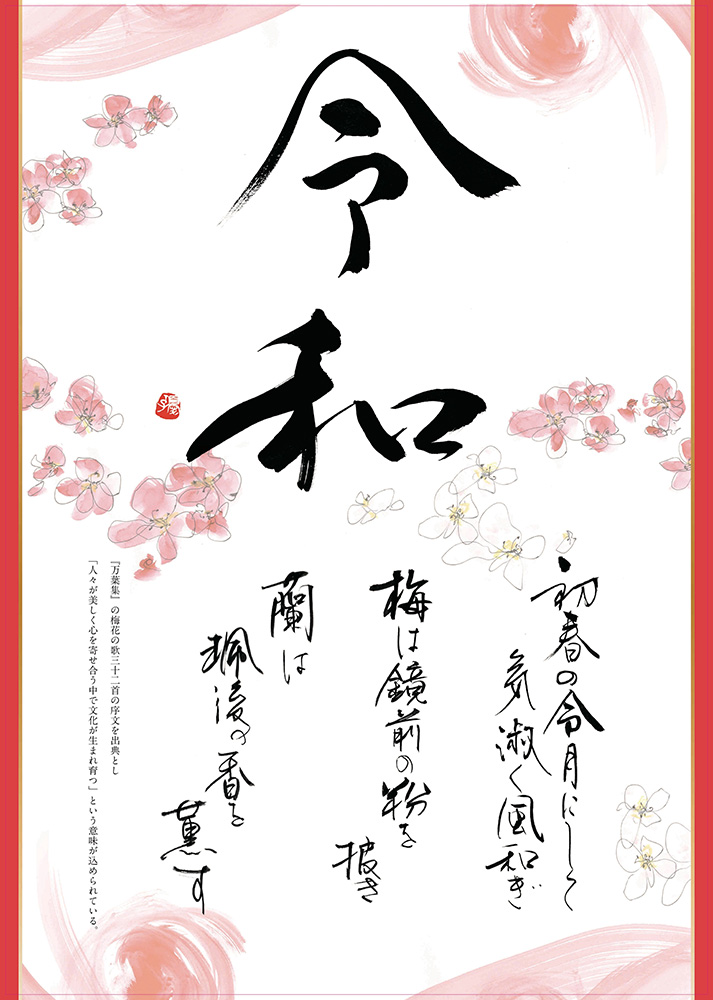 令和
初春の令月にして
気淑く風和ぎ
梅は鏡前の粉を
披き
蘭は
珮後の香を
薫す
『万葉集』の梅花の歌三十二首の序文を出典とし
「人々が美しく心を寄せ合う中で文化が生まれ育つ」という意味が込められている。